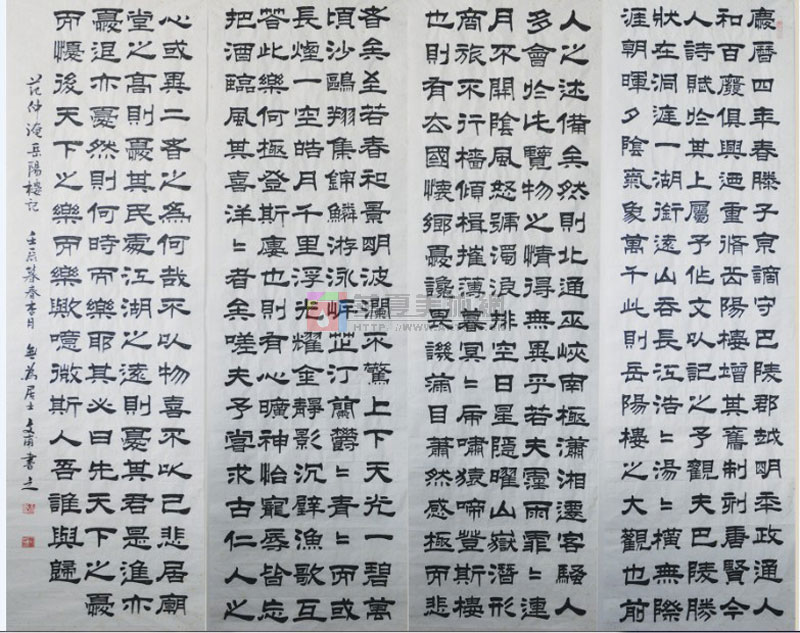 慶曆四年春滕子京謫守巴陵郡越明年政通人
和百廢俱興迺重脩岳陽樓增其舊制刻唐賢今
人詩賦於其上屬予作文以記之予觀夫巴陵勝
狀在洞庭一湖銜遠山吞長江浩〻湯〻橫無際
涯朝暉夕陰氣象萬千此則岳陽樓之大觀也前
人之述備矣然則北通巫峽南極瀟湘遷客騷人
多會於此覽物之情得無異乎若夫霪雨霏〻連
月不開陰風怒號濁浪排空日星隱曜山嶽潛形
商旅不行檣傾楫摧薄暮冥〻虎嘯猿啼登斯樓
也則有去國懷鄉憂讒畏譏滿目蕭然感極而悲
者矣至若春和景明波瀾不驚上下天光一碧萬
頃沙鷗翔集錦鱗游泳岸芷汀蘭鬱〻青〻而或
長煙一空皓月千里浮光耀金靜影沉璧漁歌互
答此樂何極登斯樓也則有心曠神怡寵辱皆忘
把酒臨風其喜洋〻者矣嗟夫予嘗求古仁人之
心或異二者之為何哉不以物喜不以己悲居廟
堂之高則憂其民處江湖之遠則憂其君是進亦
憂退亦憂然則何時而樂耶其必曰先天下之憂
而憂後天下之樂而樂歟噫微斯人吾誰與歸
范仲淹岳陽樓記 壬辰暮春 居士 書之